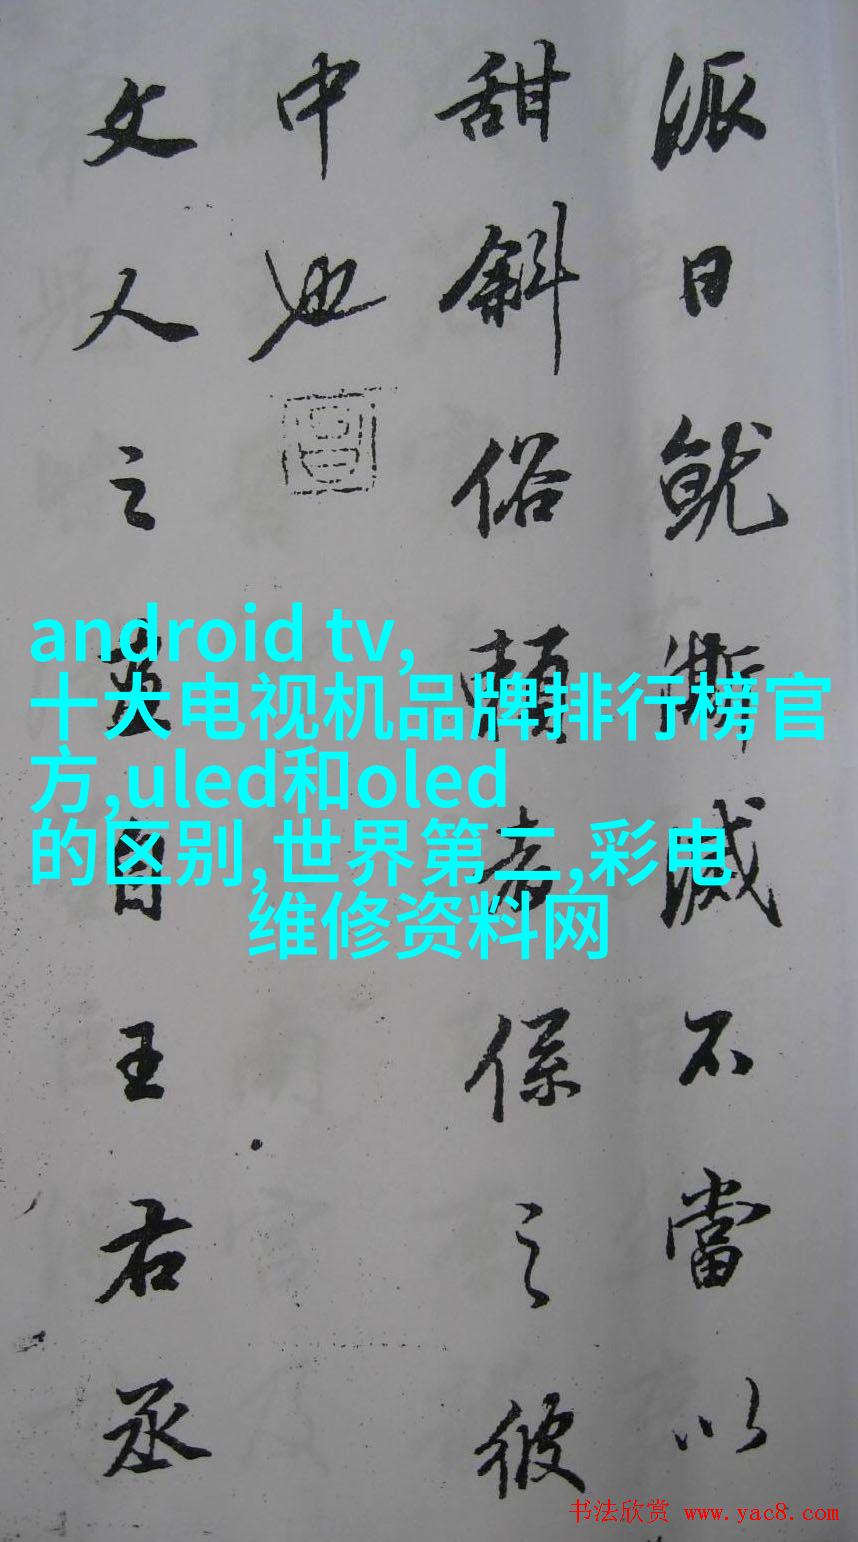 派日就澌滅不當以
甜斜俗賴者係之彼
中也
文人之畫自王右丞
android tv,
十大电视机品牌排行榜官
方,uled和oled
的区别,世界第二,彩电
维修资料网
书法欣赏 www.yac8.com